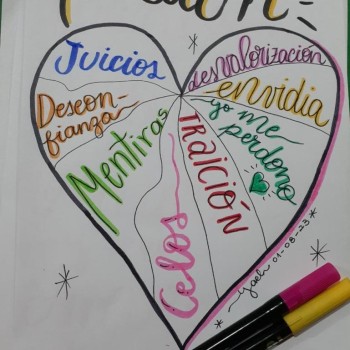 Juicios
desvalorización
Descon-
fianza
envidia
Mentiras
TRAICIÓN
yo me
perdono
Celos
Yach 01-08-23